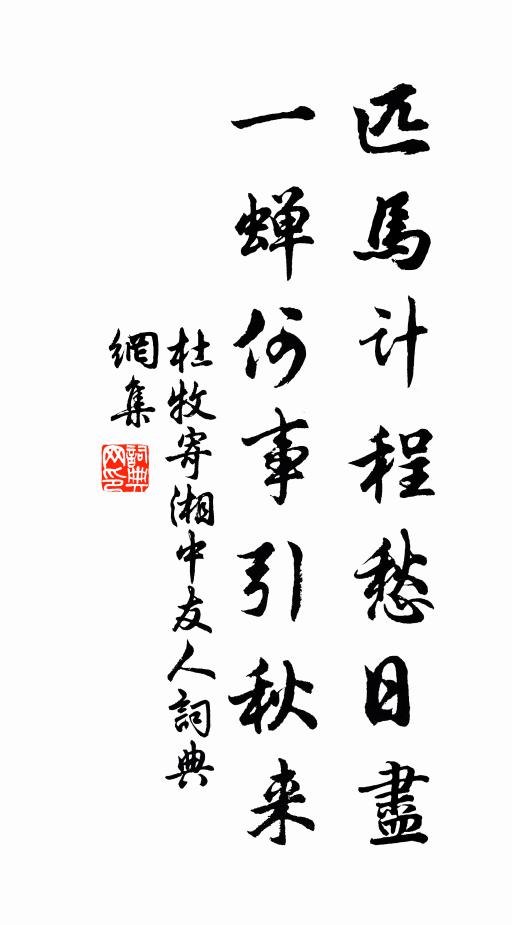 匹馬计程愁日盡
一蝉何事引秋来
杜牧寄湘中友人詞典
網集
詞典
网印